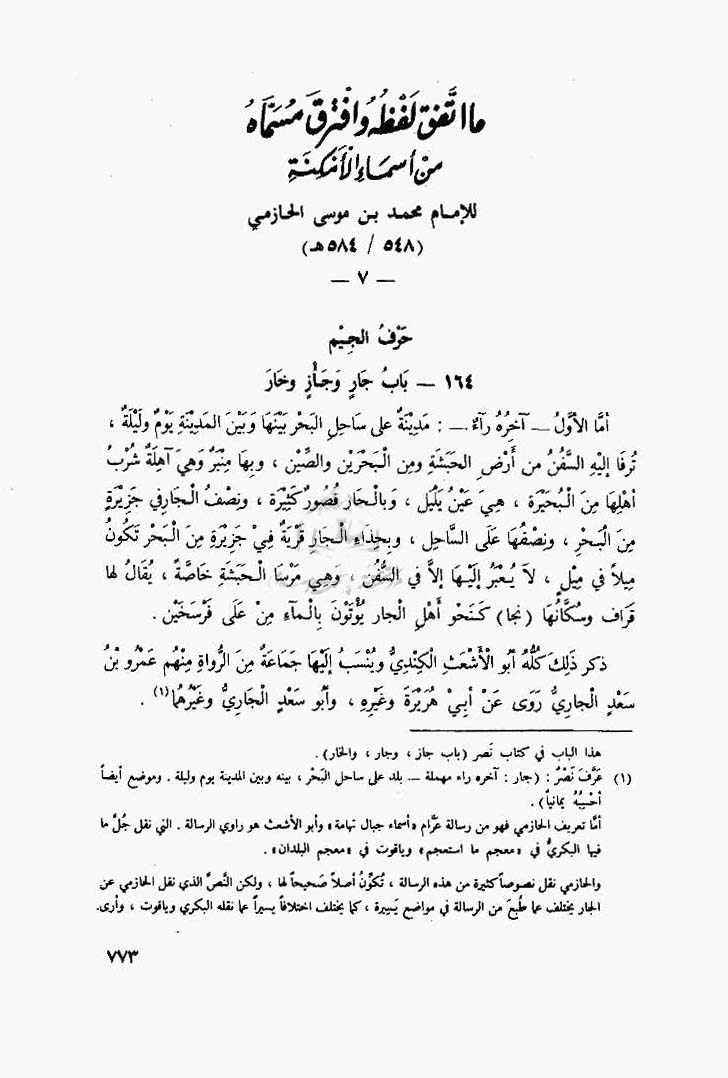 ما اتَّفق لَفْظُه وَافْتَرقَ مُسَمَّاهُ
مِنْ أسمَاءِ الأمْكِنَةِ
للإمام محمد بن موسى الحازمي
(٥٤٨ / ٥٨٤هـ)
— ٧ —
حَرْفُ الجِيْم
١٦٤ — بَابُ جَارٍ وَجَأْزٍ وخَارَ
أمَّا الأوَّلُ — آخِرُهُ رآءٌ — : مَدِيْنَةٌ على سَاحلِ البَحْرِ بَيْنَهَا وَبَيْنَ المَدِيْنَةِ يَوْمٌ ولَيْلَةٌ ،
تُرفَا إلَيْهِ السُّفُنُ من أَرْضِ الحَبَشَةِ ومِن الْبَحْرَيْن والصِّيْن ، وبِهَا مِنْبَرٌ وَهِيَ آهِلَةٌ شُرْبُ
أهْلِهَا مِنَ الْبُحَيْرَة ، هِيَ عَيْنُ يَلْيَل ، وَبالْحار قُصُورٌ كَثِيْرَة ، ونِصْفُ الْجارِفي جَزِيْرَةٍ
مِنَ الْبَحْرِ ، ونِصْفُهَا عَلَى السَّاحلِ ، وبِحِذَاءِ الْجارِ قَرْيَةٌ فِيْ جَزِيْرَةٍ مِنَ الْبَحْر تَكُونُ
مِيلاً في مِيْلٍ ، لاَ يُعْبَرُ إلَيْهَا إلاَّ في السُّفُن ، وَهِي مَرْسَا الْحَبَشَةِ خَاصَّةً ، يُقَالُ لها
قَرَاف وسُكَّانُهَا (نجا) كَنَحْوِ أَهْلِ الجار يُؤْتَوْنَ بِالْمآءِ مِنْ عَلَى فَرْسَخَيْن .
ذكر ذَلِكَ كُلُّهُ أَبُو الأَشْعَثِ الكِنْدِيُّ وَيُنْسَبُ إلَيْهَا جَمَاعَةٌ مِنَ الرُّواةِ مِنْهُم عَمْرُو بْنُ
سَعْدٍ الْجارِيُّ رَوَى عَنْ أَبِيْ هُرَيْرَةَ وغَيْرِهِ ، وأَبُو سَعْدٍ الْجَارِيُّ وغَيْرُهُما(١) .
هذا الباب في كتاب نَصر (باب جاز ، وجار ، والخار) .
(١) عَرَّفَ نَصْرُ : (جار : آخره راء مهملة — بلد على ساحل البَحْر ، بينه وبين المدينة يوم وليلة . وموضع أيضاً
أحْسِبُهُ يمانياً) .
أمَّا تعريف الحازمي فهو من رسالة عرَّام «أسماء جبال تهامة» وأبو الأشعث هو راوي الرسالة . التي نقل جُلَّ ما
فيها البكريُّ في «معجم ما استعجم» وياقوت في «معجم البلدان» .
والحازمي نقل نصوصاً كثيرة من هذه الرسالة ، تُكَوِّنُ أصلاً صَحيحاً لها ، ولكن النَّصَّ الذي نقل الحازمي عن
الجار يختلف عما طُبعَ من الرسالة في مواضع يَسيرة ، كما يختلف اختلافاً يسيراً عما نقله البكري وياقوت ، وأرى.
٧٧٣